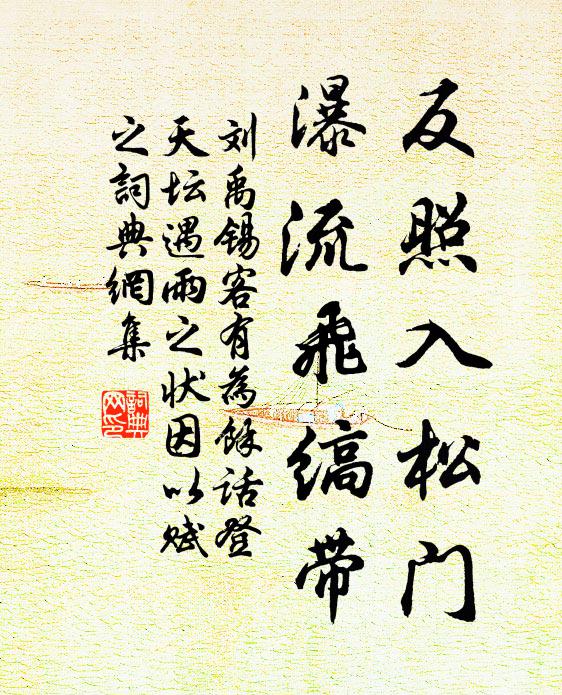 反照入松门
瀑流飛縞带
刘禹锡客有為餘话登
天坛遇雨之状因以赋
之詞典網集
詞典
网印